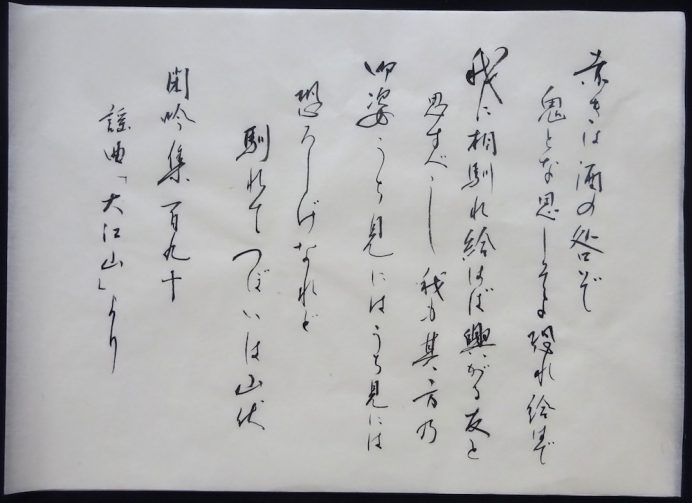 赤きは酒の咎ぞ
鬼とな思しそよ恐れ給はで
我に相馴れ給はば興がる友と
思すべし我も其方の
御姿うち見にはうち見には
恐ろしげなれど
馴れてつぼいは山伏
閑吟集百九十
謡曲「大江山」より